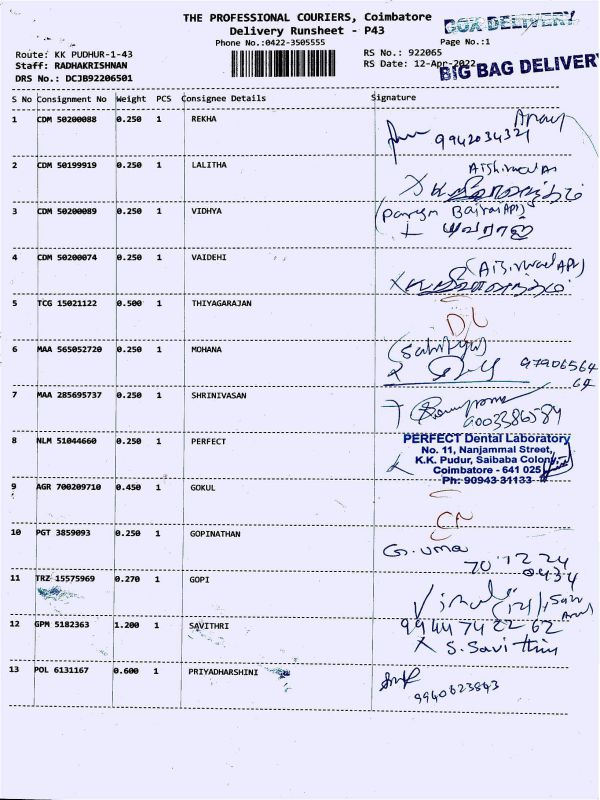 THE PROFESSIONAL COURIERS, Coimbatore
BOX DELIVERY
Delivery Runsheet - P43
Phone No.:0422-3505555
Page No.:1
Route: KK PUDHUR-1-43
RS No.: 922065
Staff: RADHAKRISHNAN
RS Date: 12-Apr-2022
BIG BAG DELIVERY
DRS No.: DCJB92206501
S No Consignment No Weight PCS Consignee Details Signature
1 CDM 50200088 0.250 1 REKHA
9942034321
2 CDM 50199919 0.250 1 LALITHA
3 CDM 50200089 0.250 1 VIDHYA
4 CDM 50200074 0.250 1 VAIDEHI
5 TCG 15021122 0.500 1 THIYAGARAJAN
DL
6 MAA 565052720 0.250 1 MOHANA
97906564
64
7 MAA 285695737 0.250 1 SHRINIVASAN
9003386584
8 NLM 51044660 0.250 1 PERFECT
PERFECT Dental Laboratory
No. 11, Nanjammal Street,
K.K. Pudur, Saibaba Colony,
Coimbatore - 641 025
Ph: 90943 31133
9 AGR 700209710 0.450 1 GOKUL
CN
10 PGT 3859093 0.250 1 GOPINATHAN
G. uma
70 12 24
0434
11 TRZ 15575969 0.270 1 GOPI
12 GPM 5182363 1.200 1 SAVITHRI
9944742262
X S. Savithiri
13 POL 6131167 0.600 1 PRIYADHARSHINI
9940623843